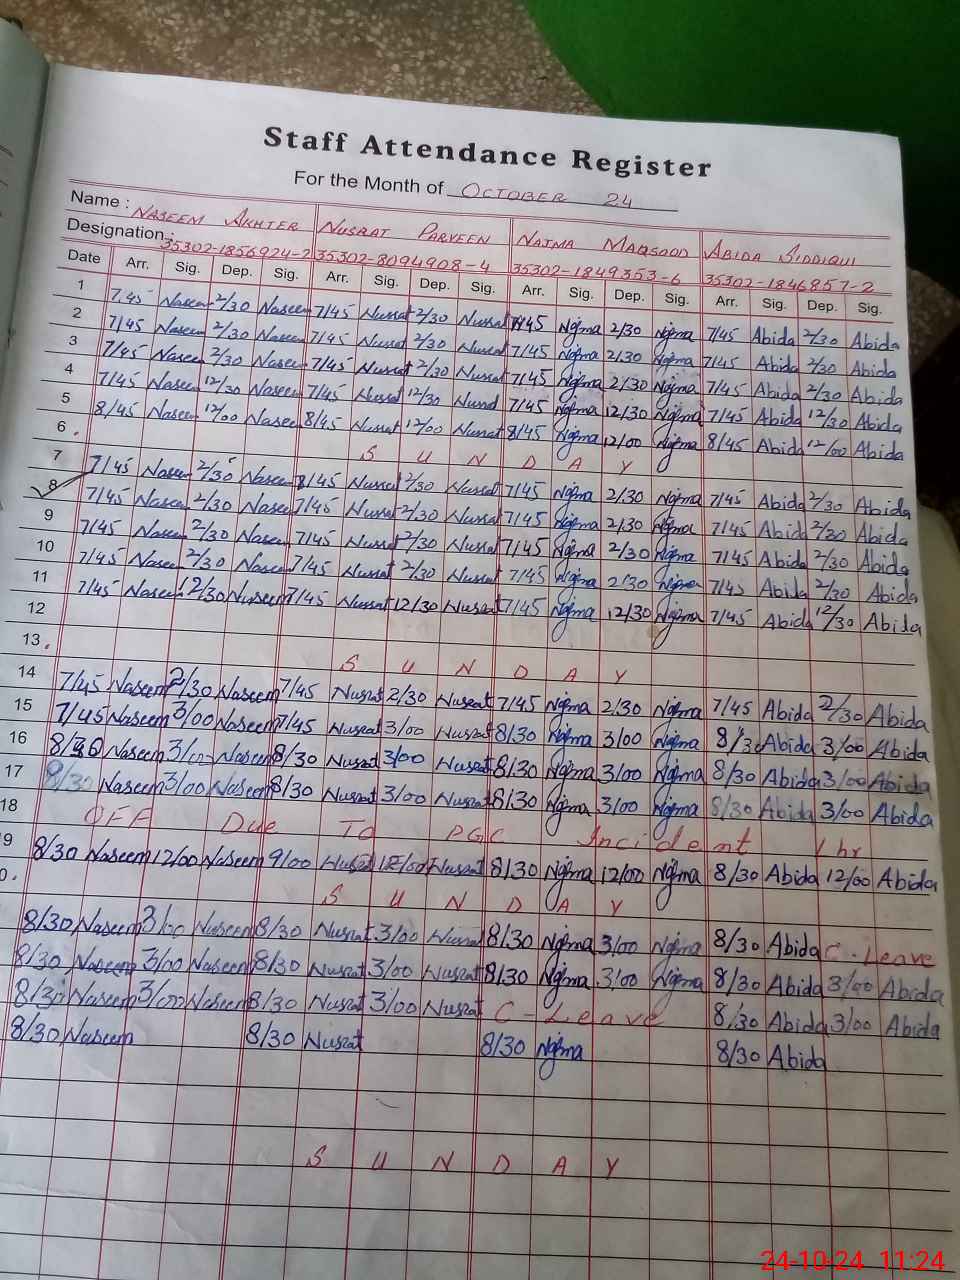 Staff Attendance Register
For the Month of OCTOBER 24
Name : NASEEM AKHTER NUSRAT PARVEEN NAJMA MAQSOOD ABIDA SIDDIQUI
Designation : 35302-1856924-2 35302-8094908-4 35302-1849353-6 35302-1846857-2
Date Arr. Sig. Dep. Sig. Arr. Sig. Dep. Sig. Arr. Sig. Dep. Sig. Arr. Sig. Dep. Sig.
1 7.45 Naseem 2/30 Naseem 7/45 Nusrat 2/30 Nusrat 7/45 Ngma 2/30 Ngma 7/45 Abida 2/30 Abida
2 7/45 Naseem 2/30 Naseem 7/45 Nusrat 2/30 Nusrat 7/45 Ngma 2/30 Ngma 7/45 Abida 2/30 Abida
3 7/45 Naseem 2/30 Naseem 7/45 Nusrat 2/30 Nusrat 7/45 Ngma 2/30 Ngma 7/45 Abida 2/30 Abida
4 7/45 Naseem 12/30 Naseem 7/45 Nusrat 12/30 7/45 Ngma 12/30 Ngma 7/45 Abida 12/30 Abida
5 8/45 Naseem 12/00 Naseem 8/45 Nusrat 12/00 Nusrat 8/45 Ngma 12/00 Ngma 8/45 Abida 12/00 Abida
6. S U N D A Y
7 7/45 Naseem 2/30 Naseem Nusrat 2/30 Nusrat 7/45 Ngma 2/30 Ngma 7/45 Abida 2/30 Abida
8 7/45 Naseem 2/30 Naseem 7/45 Nusrat 2/30 Nusrat 7/45 Ngma 2/30 Ngma 7/45 Abida 2/30 Abida
9 7/45 Naseem 2/30 Naseem 7/45 Nusrat 2/30 Nusrat 7/45 Ngma 2/30 Ngma 7/45 Abida 2/30 Abida
10 7/45 Naseem 2/30 Naseem 7/45 Nusrat 2/30 Nusrat 7/45 Ngma 2/30 Ngma 7/45 Abida 2/30 Abida
11 7/45 Naseem 12/30 Nuseem 7/45 Nusrat 12/30 Nusrat 7/45 Ngma 12/30 Ngma 7/45 Abida 12/30 Abida
12
13. S U N D A Y
14 7/45 Naseem 2/30 Naseem 7/45 Nusrat 2/30 Nusrat 7/45 Ngma 2/30 Ngma 7/45 Abida 2/30 Abida
15 7/45 Naseem 3/00 Naseem 7/45 Nusrat 3/00 Nusrat 8/30 Ngma 3/00 Ngma 8/30 Abida 3/00 Abida
16 8/30 Naseem 3/00 Naseem 8/30 Nusrat 3/00 Nusrat 8/30 Ngma 3/00 Ngma 8/30 Abida 3/00 Abida
17 8/30 Naseem 3/00 Naseem 8/30 Nusrat 3/00 Nusrat 8/30 Ngma 3/00 Ngma 8/30 Abida 3/00 Abida
18 OFF Due To PGC Incident Lhr
9 8/30 Naseem 12/00 Naseem 9/00 Nusrat 12/00 Nusrat 8/30 Ngma 12/00 Ngma 8/30 Abida 12/00 Abida
0. S U N D A Y
8/30 Naseem 3/00 Naseem 8/30 Nusrat 3/00 Nusrat 8/30 Ngma 3/00 Ngma 8/30 Abida C-Leave
8/30 Naseem 3/00 Naseem 8/30 Nusrat 3/00 Nusrat 8/30 Ngma 3/00 Ngma 8/30 Abida 3/00 Abida
8/30 Naseem 3/00 Naseem 8/30 Nusrat 3/00 Nusrat C-Leave 8/30 Abida 3/00 Abida
8/30 Naseem 8/30 Nusrat 8/30 Ngma 8/30 Abida
S U N D A Y
24-10-24 11:24